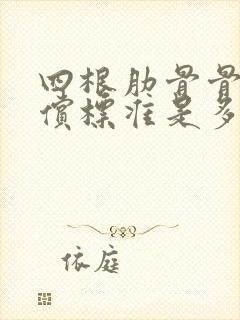 四根肋骨骨
償標准是多
依庭